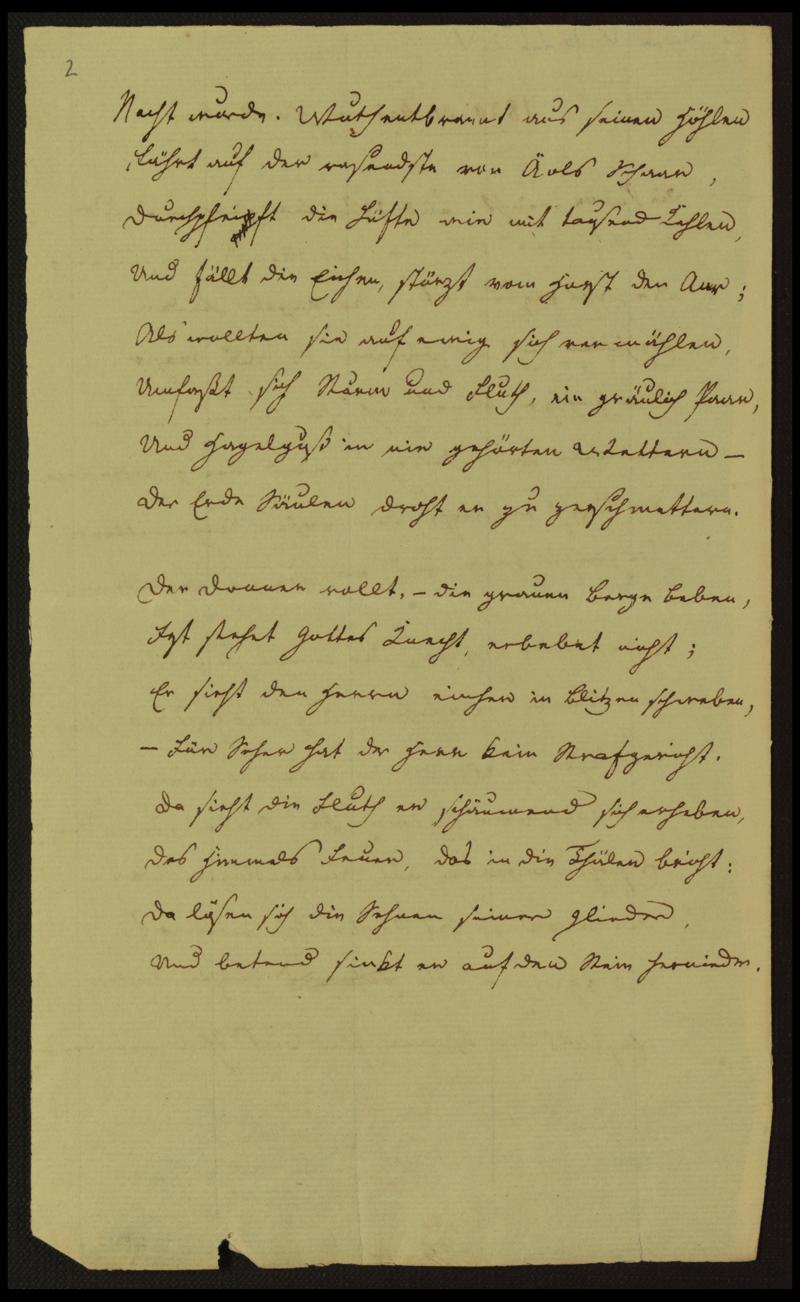 2
Nacht wurde. Wuthentbrannt aus seinen Höhlen
Fährt auf der rasendste von Äols Schaar,
Durchpfeift die Lüfte wie mit tausend Kehlen,
Und fällt die Eichen, stürzt vom Horst den Aar;
Als wollten sie auf ewig sich vermählen,
Umfaßt sich Sturm und Fluth, ein gräulich Paar,
Und Hagelguß in nie gehörten Wettern –
Der Erde Säulen droht er zu zerschmettern.
Der Donner rollt, – die grauen Berge beben,
Izt stehet Gottes Knecht, erbebet nicht;
Er sieht den Herrn einher in Blitzen schweben,
– Für Seher hat der Herr kein Strafgericht.
Da sieht die Fluth er schäumend sich erheben,
Des Himmels Feuer, das in die Thäler bricht:
Da lösen sich die Sehnen seiner Glieder,
Und betend sinkt er auf den Stein hernieder.